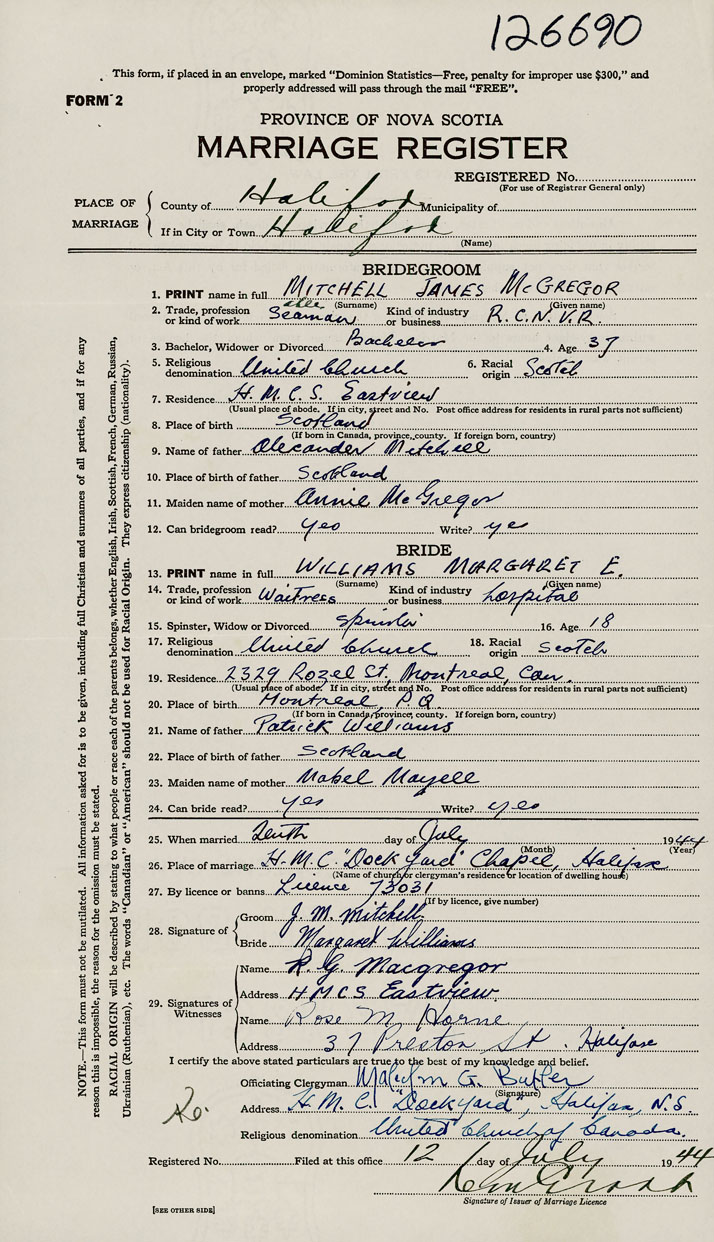 126690
This form, if placed in an envelope, marked "Dominion Statistics—Free, penalty for improper use $300," and
properly addressed will pass through the mail "FREE".
FORM 2
PROVINCE OF NOVA SCOTIA
MARRIAGE REGISTER
REGISTERED No.
(For use of Registrar General only)
PLACE OF MARRIAGE
County of Halifax Municipality of
If in City or Town Halifax
(Name)
BRIDEGROOM
1. PRINT name in full MITCHELL JAMES McGREGOR
(Surname) (Given name)
2. Trade, profession or kind of work able Seaman Kind of industry or business R.C.N.V.R.
3. Bachelor, Widower or Divorced Bachelor 4. Age 37
5. Religious denomination United Church 6. Racial origin Scotch
7. Residence H.M.C.S. Eastview
(Usual place of abode. If in city, street and No. Post office address for residents in rural parts not sufficient)
8. Place of birth Scotland
(If born in Canada, province, county. If foreign born, country)
9. Name of father Alexander Mitchell
10. Place of birth of father Scotland
11. Maiden name of mother Annie McGregor
12. Can bridegroom read? yes Write? yes
BRIDE
13. PRINT name in full WILLIAMS MARGARET E.
(Surname) (Given name)
14. Trade, profession or kind of work Waitress Kind of industry or business hospital
15. Spinster, Widow or Divorced Spinster 16. Age 18
17. Religious denomination United Church 18. Racial origin Scotch
19. Residence 2329 Rozel St, Montreal, Can.
(Usual place of abode. If in city, street and No. Post office address for residents in rural parts not sufficient)
20. Place of birth Montreal, P.Q.
(If born in Canada, province, county. If foreign born, country)
21. Name of father Patrick Williams
22. Place of birth of father Scotland
23. Maiden name of mother Mabel Mayell
24. Can bride read? yes Write? yes
25. When married Tenth day of July 1944
(Month) (Year)
26. Place of marriage H.M.C. "Dockyard" Chapel, Halifax
(Name of church or clergyman's residence or location of dwelling house)
27. By licence or banns Licence 73031
(If by licence, give number)
28. Signature of
Groom J. M. Mitchell
Bride Margaret Williams
29. Signatures of Witnesses
Name R. G. Macgregor
Address HMCS Eastview
Name Rose M Horne
Address 37 Preston St. Halifax
I certify the above stated particulars are true to the best of my knowledge and belief.
Officiating Clergyman Malcolm G. Butler
(Signature)
Address H.M.C. "Dockyard", Halifax, N.S.
Religious denomination United Church of Canada.
Registered No. Filed at this office 12 day of July 1944
Signature of Issuer of Marriage Licence
[SEE OTHER SIDE]
NOTE.—This form must not be mutilated. All information asked for is to be given, including full Christian and surnames of all parties, and if for any
reason this is impossible, the reason for the omission must be stated.
RACIAL ORIGIN will be described by stating to what people or race each of the parents belongs, whether English, Irish, Scottish, French, German, Russian,
Ukrainian (Ruthenian), etc. The words "Canadian" or "American" should not be used for Racial Origin. They express citizenship (nationality).